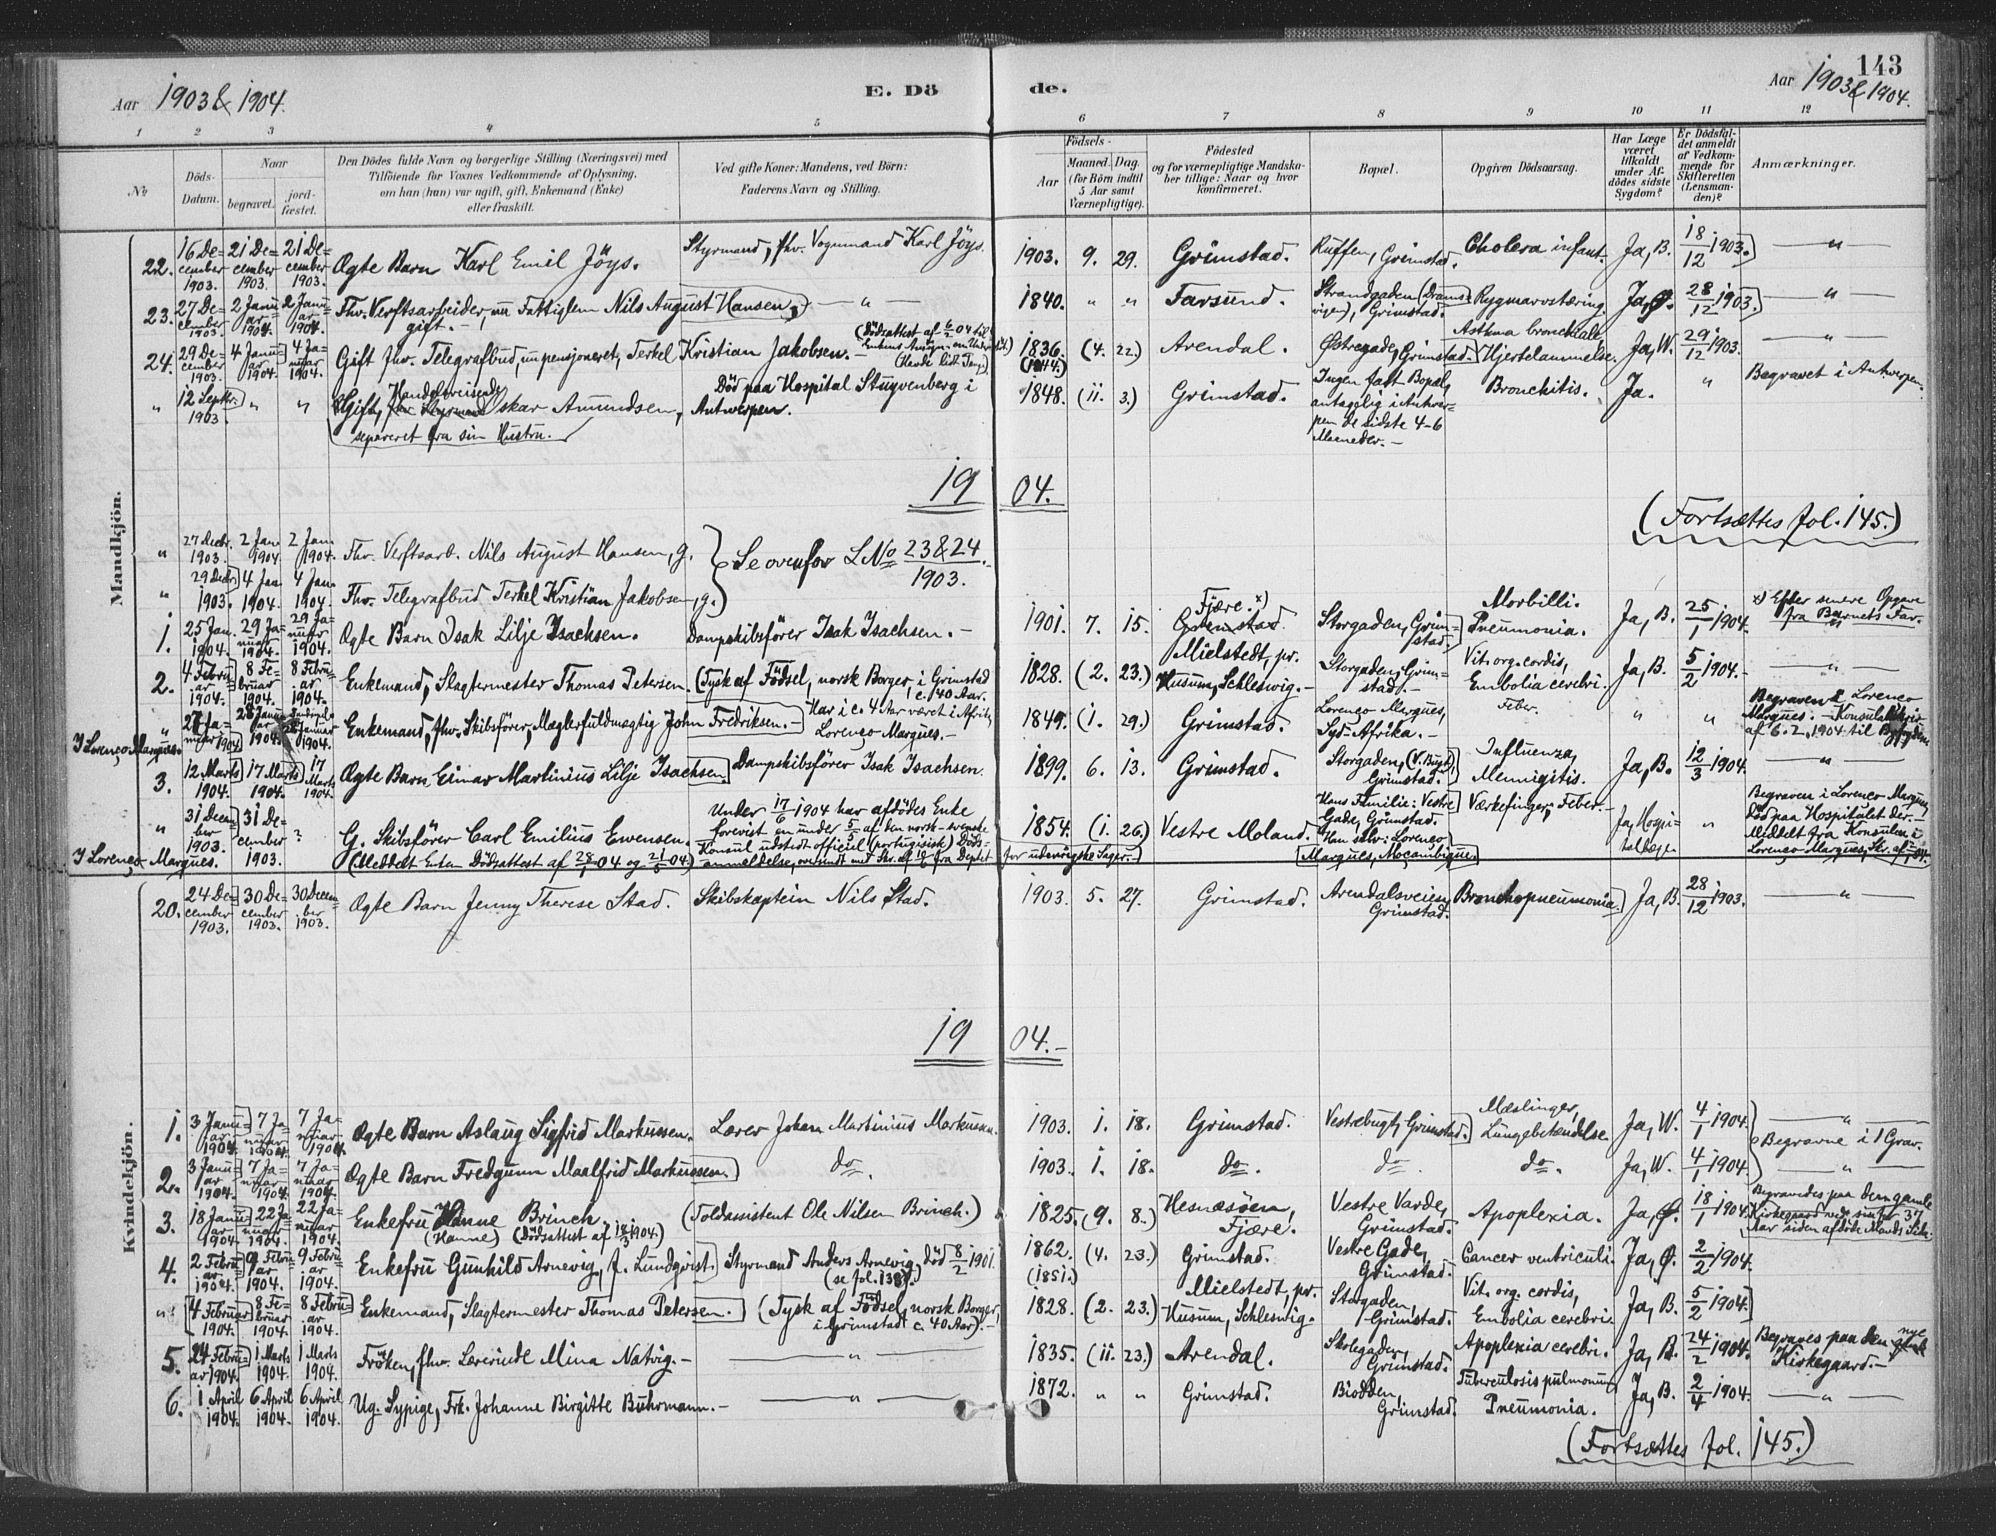 143
Aar 1903 & 1904.
E. Dö
de.
Aar 1903 & 1904.
1 2 3 4 5 6 7 8 9 10 11 12
No
Döds-Datum.
Naar
begravet.
jord-fæstet.
Den Dödes fulde Navn og borgerlige Stilling (Næringsvei) med
Tilföiende for Voxnes Vedkommende af Oplysning,
om han (hun) var ugift, gift, Enkemand (Enke)
eller fraskilt.
Ved gifte Koner: Mandens, ved Börn:
Faderens Navn og Stilling.
Födsels-
Aar
Maaned. Dag.
(for Börn indtil
5 Aar samt
Værnepligtige).
Födested
og for værnepligtige Mandska-
ber tillige: Naar og hvor
konfirmeret.
Bopæl.
Opgiven Dödsaarsag.
Har Læge
været
tilkaldt
under Af-
dödes sidste
Sygdom?
Er Dödsfal-
det anmeldt
af Vedkom-
mende for
Skifteretten
(Lensman-
den)?
Anmærkninger.
Mandkjön.
22. 16 December 1903. 21 December 1903. 21 December 1903. Ægte Barn Karl Emil Jöys. Styrmand, fhv. Vognmand Karl Jöys. 1903. 9. 29. Grimstad. Ruffen, Grimstad. Cholera infant. Ja, B. 18/12 1903. — " —
23. 27 December 1903. 2 Januar 1904. 2 Januar 1904. Fhv. Verftsarbeider, nu Fattiglem Nils August Hansen, gift. — " — 1840. " " Farsund. Strandgaden (Dramsvigen), Grimstad. Rygmarvstæring. Ja, Ø. 28/12 1903. — " —
24. 29 December 1903. 4 Januar 1904. 4 Januar 1904. Gift fhv. Telegrafbud, un pensjoneret, Terkel Kristian Jakobsen. — (Dödsattest af 6/2 04 til 1836. (1844.) (4. 22.) Arendal. Østregade, Grimstad. Asthma bronchiale Hjertelammelse. Ja, W. 29/12 1903. — " —
" 12 Septbr. 1903. " " Gift, Handelsreisende Oskar Amundsen, separeret fra sin Hustru. Död paa Hospital Stuyvenberg i Antwerpen. 1848. (11. 3.) Grimstad. Ingen fast Bopæl, antagelig i Antwerpen de sidste 4-6 Maaneder. — Bronchitis. Ja. " Begravet i Antwerpen.
19 04.
(Fortsættes fol. 145.)
" 27 Decbr. 1903. 2 Jan. 1904. 2 Jan. 1904. Fhv. Verftsarb. Nils August Hansen, g. } Se ovenfor L No 23 & 24 / 1903.
" 29 Decbr. 1903. 4 Jan. 1904. 4 Jan. 1904. Fhv. Telegrafbud Terkel Kristian Jakobsen, g.
1. 25 Jan. 1904. 29 Januar 1904. 29 Januar 1904. Ægte Barn Isak Lilje Isachsen. Dampskibsförer Isak Isachsen. — 1901. 7. 15. Fjære. x) Grimstad Storgaden, Grimstad. Morbilli. Pneumonia. Ja, B. 25/1 1904. x) Efter senere Opgave fra Barnets Far.
2. 4 Februar 1904. 8 Februar 1904. 8 Februar 1904. Enkemand, Slagtermester Thomas Petersen. (Tysk af Födsel, norsk Borger i Grimstad c. 40 Aar. 1828. (2. 23.) Mielstedt, pr. Husum, Schleswig. — Storgaden, Grimstad. — Vit. org. cordis, Embolia cerebri. Ja, B. 5/2 1904. — " —
I Lorenço Marques. " 27 Januar 1904 28 Januar 1904. 28 Januar 1904. Enkemand, fhv. Skibsförer, Mæglerfuldmægtig John Fredriksen. — Har i c. 4 Aar været i Afrika, Lorenço Marques. — 1849. (1. 29.) Grimstad. Lorenço Marques, Syd-Afrika. — Feber. " " Begraven i Lorenco Marques. — af 6. 2. 1904 til
3. 12 Marts 1904. 17 Marts 1904. 17 Marts 1904. Ægte Barn Einar Martinius Lilje Isachsen Dampskibsförer Isak Isachsen. 1899. 6. 13. Grimstad. Storgaden, (V. Bugt), Grimstad. Influenza, Meningitis. Ja, B. 12/3 1904. — " —
I Lorenço Marques. " 31 December 1903. 31 December 1903. ? G. Skibsförer Carl Emilius Ewensen. (Meddelt Enken Dödsattest af 28/1 04 og 21/5 04.) Under 17/6 1904 har afdödes Enke forevist en under 5/5 af den norsk-svenske Konsul udstedt officiel (portugisisk) Dödsanmeldelse, oversendt med Skr. af 10/6 fra Deptet for udenrigske Sager. — 1854. (1. 26.) Vestre Moland. Hans Familie: Vestre Gade, Grimstad. Han selv: Lorenço Marques, Moçambique. Værkefinger, Feber. — Ja, Hospitalslæge. " Begraven i Lorenco Marques, Död paa Hospitalet der. — Meddelt fra Konsulen i Lorenço Marques, Skr. af
Kvindekjön.
20. 24 December 1903. 30 December 1903. 30 December 1903. Ægte Barn Jenny Therese Stad. Skibskaptein Nils Stad. 1903. 5. 27. Grimstad. Arendalsveien, Grimstad. Bronchopneumonia. Ja, B. 28/12 1903. — " —
19 04. —
1. 3 Januar 1904. 7 Januar 1904. 7 Januar 1904. Ægte Barn Aslaug Sigfrid Markussen. Lærer Johan Martinius Markussen. 1903. 1. 18. Grimstad. Vestrebugt, Grimstad. Mæslinger, Lungebetændelse. Ja, W. 4/1 1904. — " — } Begravne i 1 Grav.
2. 3 Januar 1904. 7 Januar 1904. 7 Januar 1904. Ægte Barn Fredgunn Maalfrid Markussen. do. 1903. 1. 18. do. do. do. Ja, W. 4/1 1904. — " —
3. 18 Januar 1904. 22 Januar 1904. 22 Januar 1904. Enkefru Hanne Brinch. (Hanne) (Dödsattest af 18/3 1904.) (Toldassistent Ole Nilsen Brinch.) 1825. (9. 8.) Hesnæsöen, Fjære. Vestre Varde, Grimstad. Apoplexia. Ja, Ø. 18/1 1904. Begravedes paa den gamle Kirkegaard ved sin for 37 Aar siden afdöde Mands Side.
4. 2 Februar 1904. 9 Februar 1904. 9 Februar 1904. Enkefru Gunhild Arnevig, f. Lundqvist. Styrmand Anders Arnevig, död 8/2 1901. (se fol. 138). 1862. (1851.) (4. 23.) Grimstad. Vestre Gade, Grimstad. Cancer ventriculi. Ja, Ø. 2/2 1904. — " —
" 4 Februar 1904. 8 Februar 1904. 8 Februar 1904. Enkemand, Slagtermester Thomas Petersen. (Tysk af Födsel, norsk Borger i Grimstad c. 40 Aar). — 1828. (2. 23.) Mielstedt, pr. Husum, Schleswig. Storgaden, Grimstad. Vit. org. cordis, Embolia cerebri. Ja, B. 5/2 1904.
5. 24 Februar 1904. 1 Marts 1904. 1 Marts 1904. Fröken, fhv. Lærerinde Mina Natvig. — — " — 1835. (11. 23.) Arendal. Skolegaden, Grimstad. Apoplexia cerebri. Ja, B. 24/2 1904. Begraves paa den nye Kirkegaard. —
6. 1 April 1904. 6 April 1904. 6 April 1904. Ug. Sypige, Frk. Johanne Birgitte Buhrmann. — — " — 1872. " " Grimstad. Biodden, Grimstad. Tuberculosis pulmonum, Pneumonia. Ja, B. 2/4 1904. — " —
(Fortsættes fol. 145.)